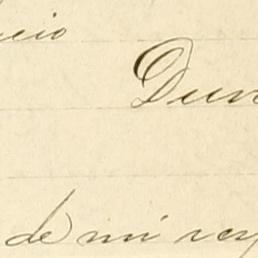 cio
Dun
de mi res